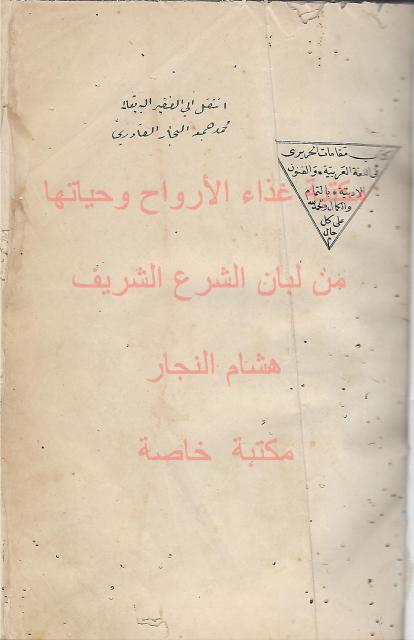 انتقل الى الفقير اليه تعالى
محمد جمعه النجار القادري
كتاب مقامات الحريرى
فى اللغة العربية والفنون
الادبية بالتمام
والكمال والحمد لله
على كل
حال
مكتبة غذاء الأرواح وحياتها
من لبان الشرع الشريف
هشام النجار
مكتبة خاصة